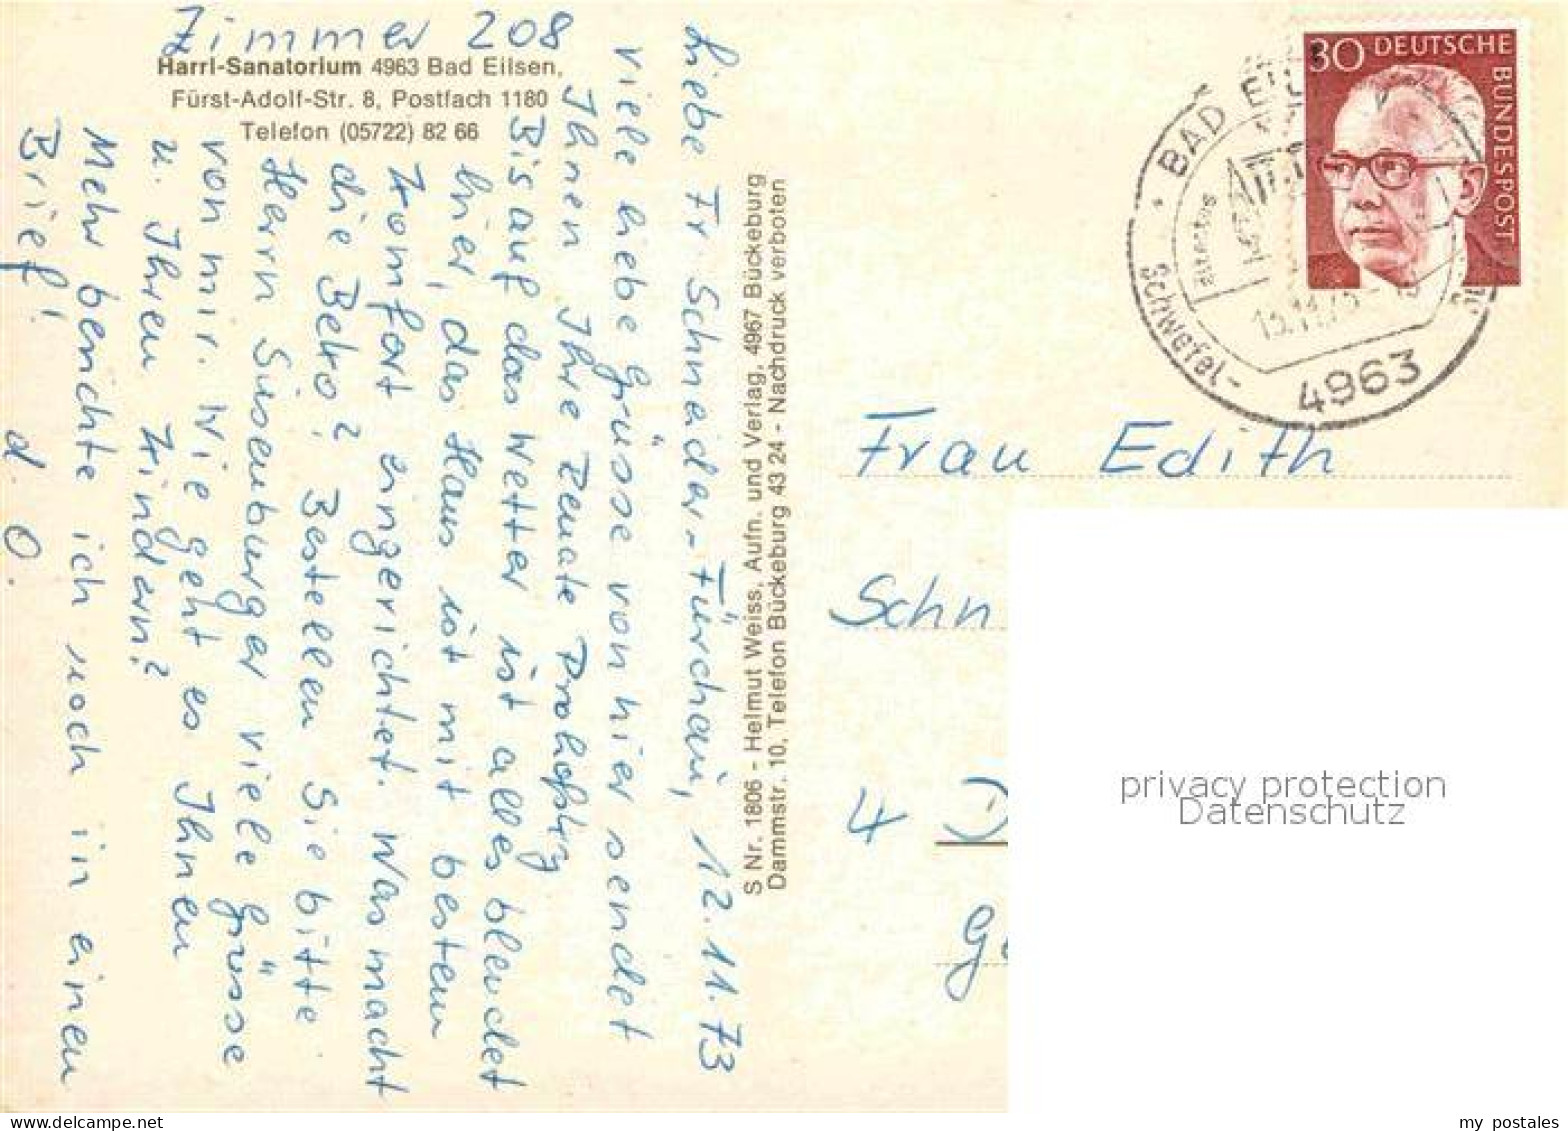 Zimmer 208
Harrl-Sanatorium 4963 Bad Eilsen,
Fürst-Adolf-Str. 8, Postfach 1180
Telefon (05722) 82 66
Liebe Fr Schneider-Fürchau, 12.11.73
viele liebe Grüsse von hier sendet
Ihnen Ihre Renate
Bis auf das Wetter ist alles blendet
hier, das Haus ist mit bestem
Komfort eingerichtet. Was macht
die Beko? Bestellen Sie bitte
Herrn Sisenburger viele Grüsse
von mir. Wie geht es Ihnen
u. Ihren Kindern?
Mehr berichte ich noch in einen
Brief! d. O.
S Nr. 1806 - Helmut Weiss, Aufn. und Verlag, 4967 Bückeburg
Dammstr. 10, Telefon Bückeburg 43 24 - Nachdruck verboten
30 DEUTSCHE
BUNDESPOST
BAD EIL
Schwefel-
4963
Frau Edith
Schn
4 D
Ge
privacy protection
Datenschutz
my postales